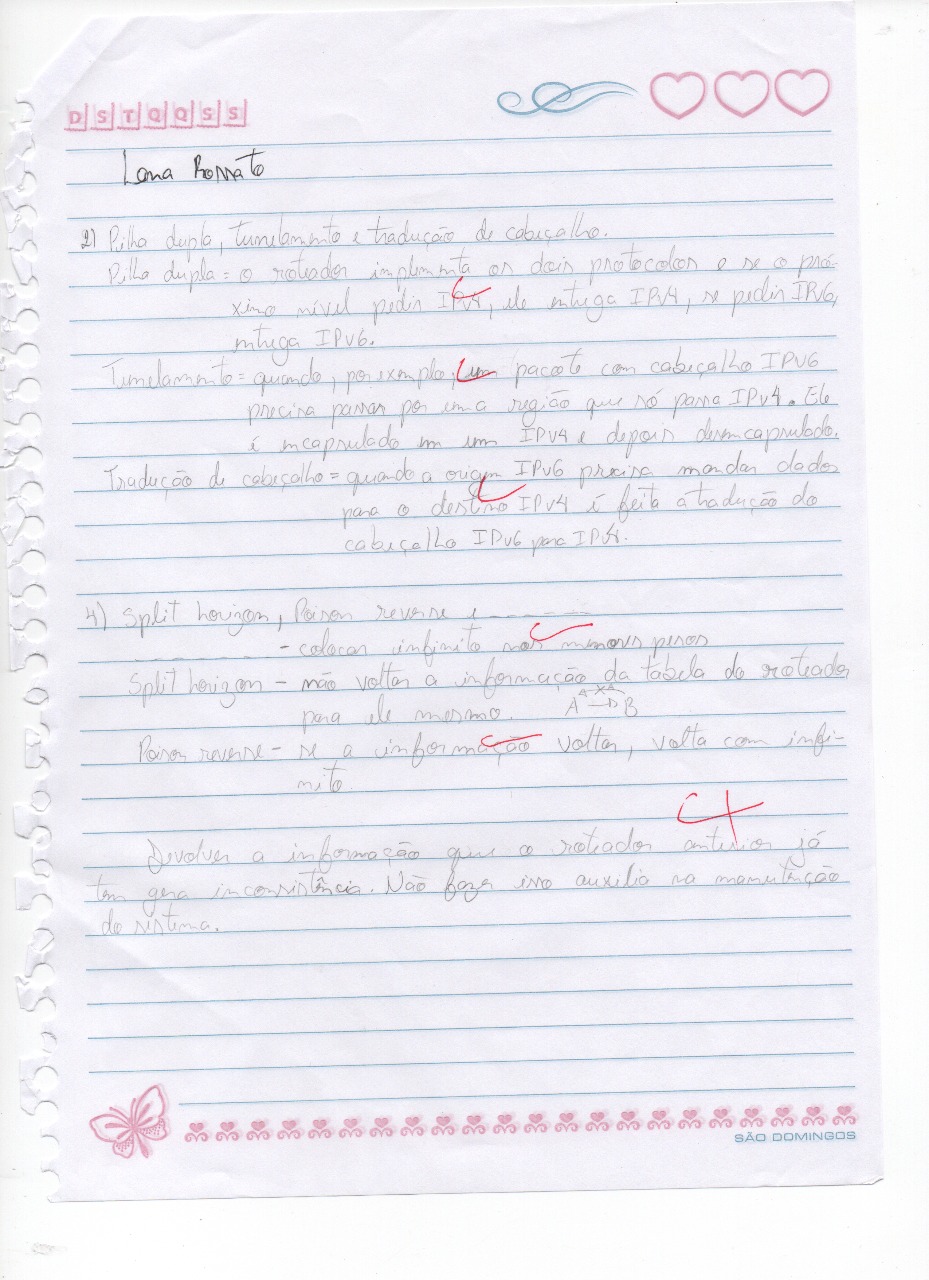 D S T Q Q S S
Lana Rossato
2) Pilha dupla, tunelamento e tradução de cabeçalho.
Pilha dupla = o roteador implementa os dois protocolos e se o pró-
ximo nível pedir IPv4, ele entrega IPv4, se pedir IPv6,
entrega IPv6.
Tunelamento = quando, por exemplo, um pacote com cabeçalho IPV6
precisa passar por uma região que só passa IPV4. Ele
é encapsulado em um IPV4 e depois desencapsulado.
Tradução de cabeçalho = quando a origem IPV6 precisa mandar dados
para o destino IPV4 é feita a tradução do
cabeçalho IPv6 para IPv4.
4) Split horizon, Poison reverse e _______
_______ - colocar infinito nos menores pesos
Split horizon - não voltar a informação da tabela do roteador
para ele mesmo. A B
Poison reverse - se a informação voltar, volta com infi-
nito.
Devolver a informação que o roteador anterior já
tem gera inconsistência. Não fazer isso auxilia na manutenção
do sistema.
SÃO DOMINGOS